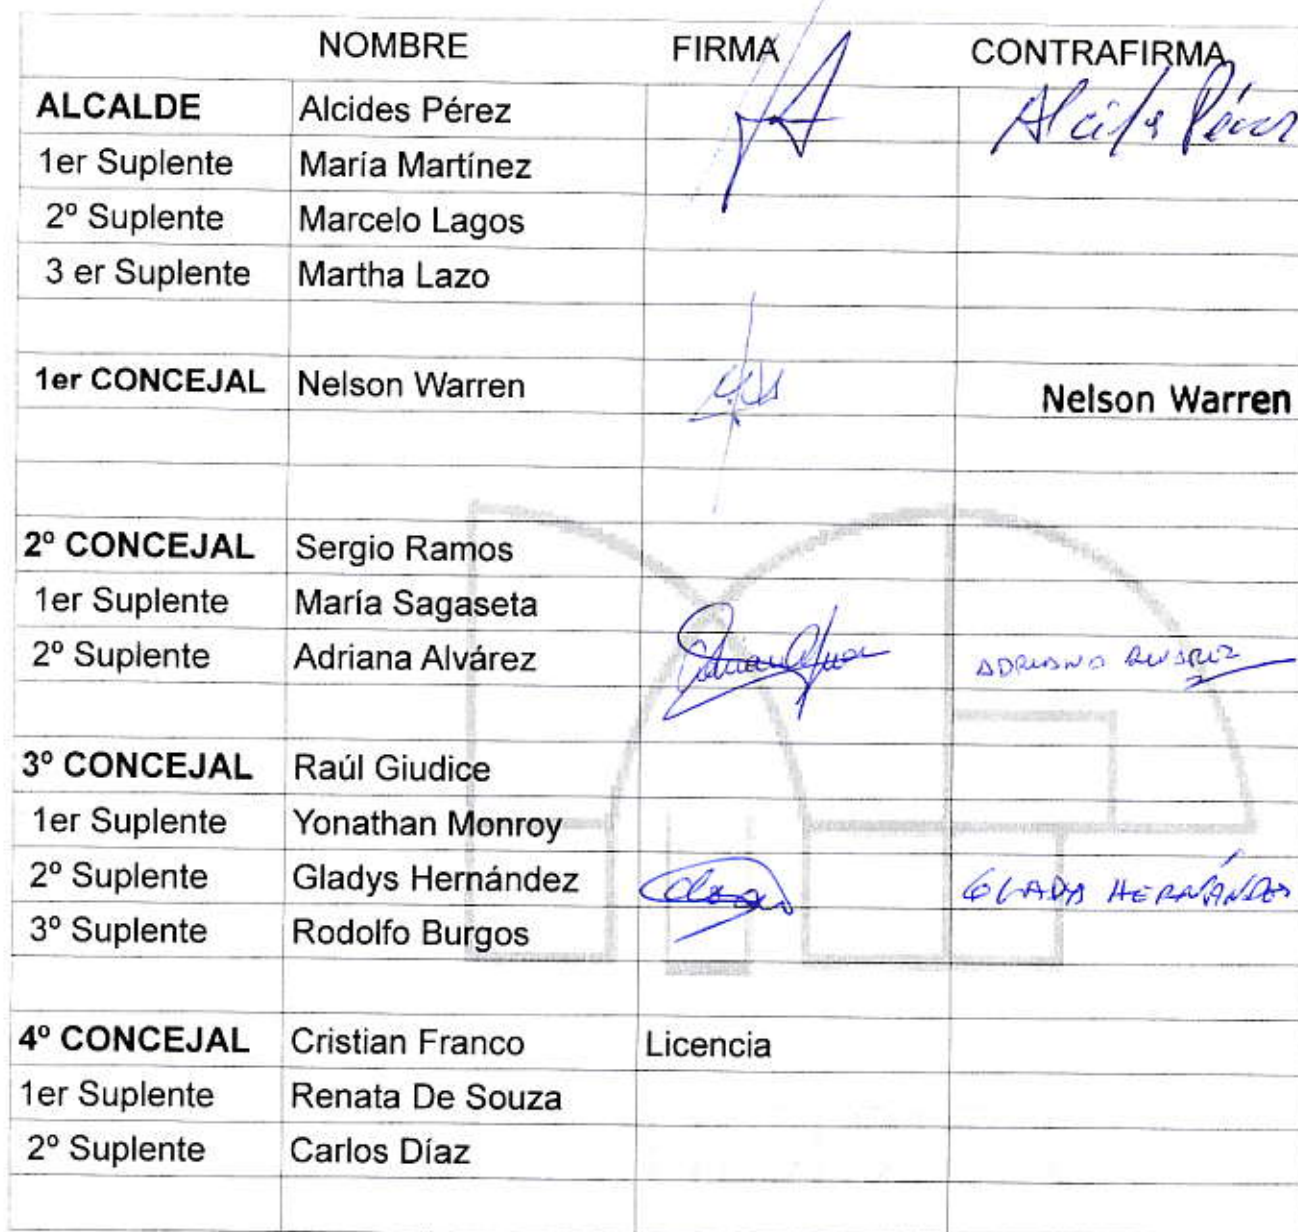 NOMBRE FIRMA CONTRAFIRMA
ALCALDE Alcides Pérez Alcides Pérez
1er Suplente María Martínez
2º Suplente Marcelo Lagos
3 er Suplente Martha Lazo
1er CONCEJAL Nelson Warren Nelson Warren
2º CONCEJAL Sergio Ramos
1er Suplente María Sagaseta
2º Suplente Adriana Alvárez ADRIANA ALVAREZ
3º CONCEJAL Raúl Giudice
1er Suplente Yonathan Monroy
2º Suplente Gladys Hernández GLADYS HERNÁNDEZ
3º Suplente Rodolfo Burgos
4º CONCEJAL Cristian Franco Licencia
1er Suplente Renata De Souza
2º Suplente Carlos Díaz